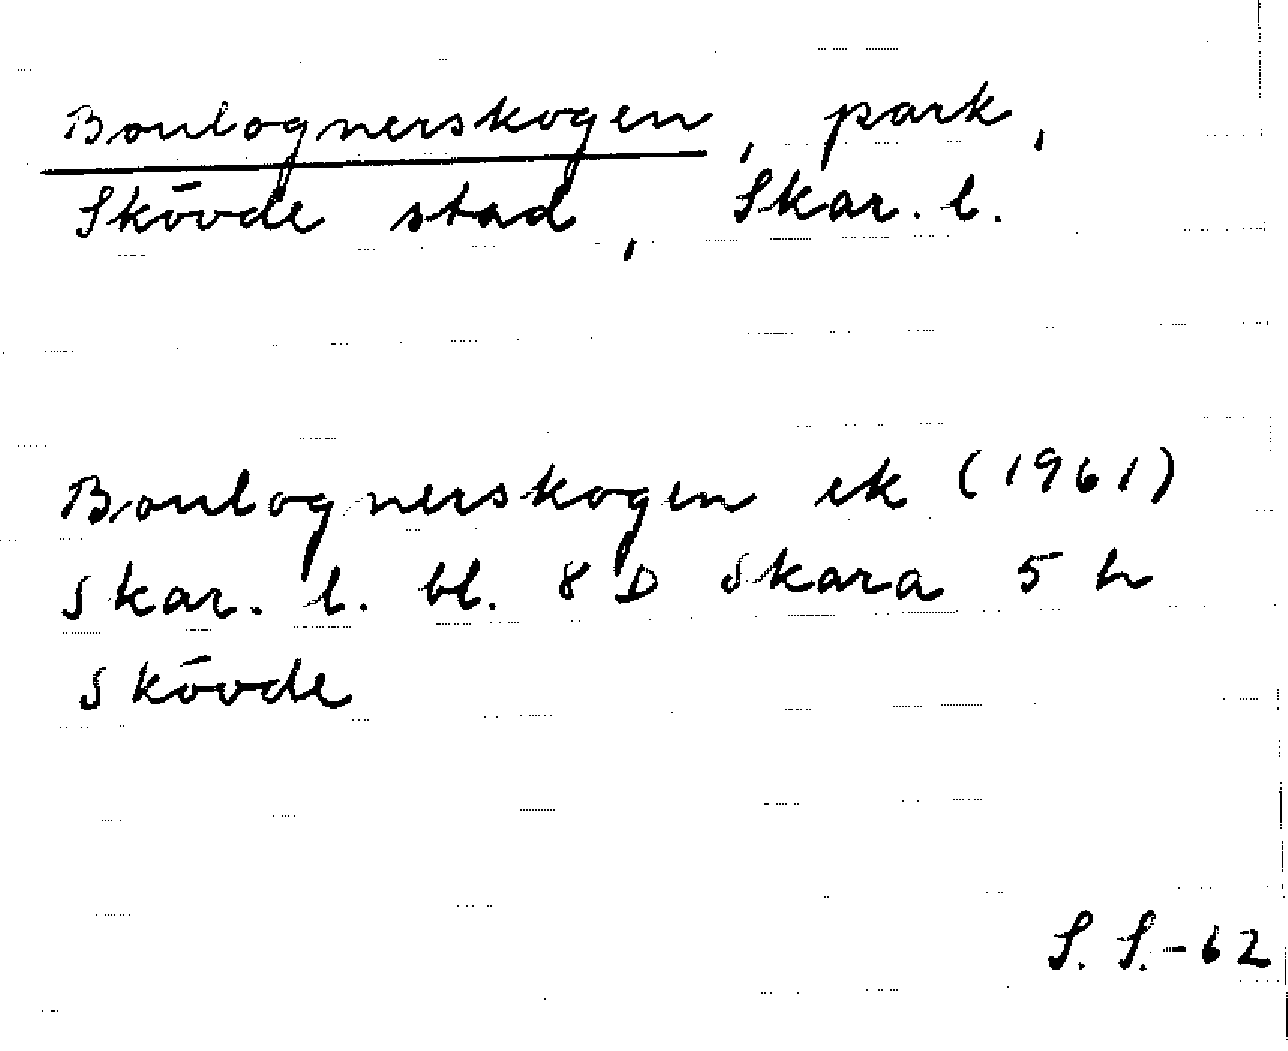 Boulognerskogen, park,
Skövde stad, Skar. l.
Boulognerskogen ek (1961)
Skar. l. bl. 8 D Skara 5 h
Skövde
S. S.-62